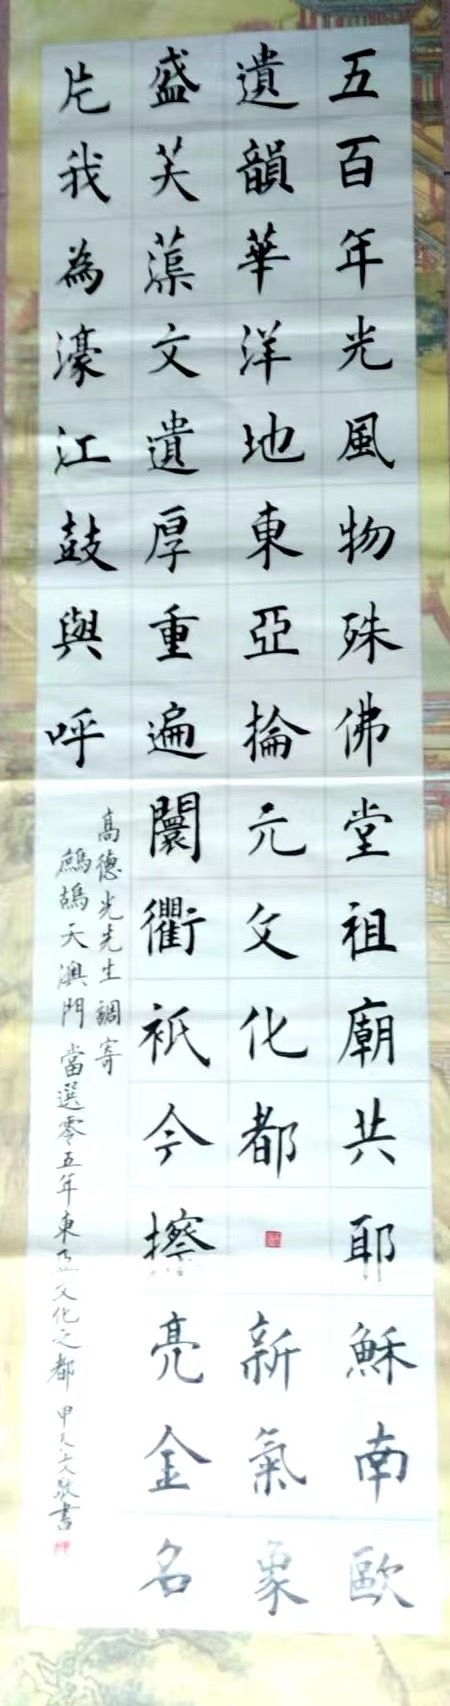 五百年光風物殊佛堂祖廟共耶穌南歐
遺韻華洋地東亞掄元文化都新氣象
盛芙蕖文遺厚重遍闤衢祇今擦亮金名
片我為濠江鼓與呼
高德光先生調寄
鷓鴣天澳門當選零五年東亞文化之都甲辰文敬書